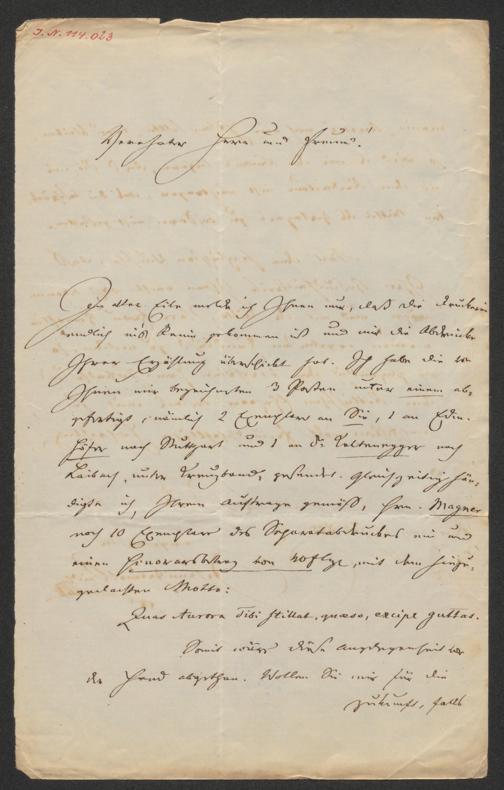 J. N. 114.023
Verehrter Herr und Freund!
In aller Eile melde ich Ihnen nur, daß die Druckerei
endlich ins Reine gekommen ist und mir die Abdrücke
Ihrer Erzählung überschickt hat. Ich habe die von
Ihnen mir bezeichneten 3 Posten unter einem ab-
gefertigt, nämlich 2 Exemplare an Sie, 1 an Edm.
Höfer nach Stuttgart und 1 an Dr. Keltenegger nach
Laibach, unter Kreuzband, gesendet. Gleichzeitig hän-
digte ich, Ihrem Auftrage gemäß, Hrn. Magner
noch 10 Exemplare des Separatabdruckes ein und
einen Honorarbetrag von 40 fl, mit dem hinzu-
gedachten Motto:
Quas Aurora Tibi stillat, quaeso, excipe guttas.
Somit wäre diese Angelegenheit von
der Hand abgethan. Wollen Sie mir für die
Zukunft, falls